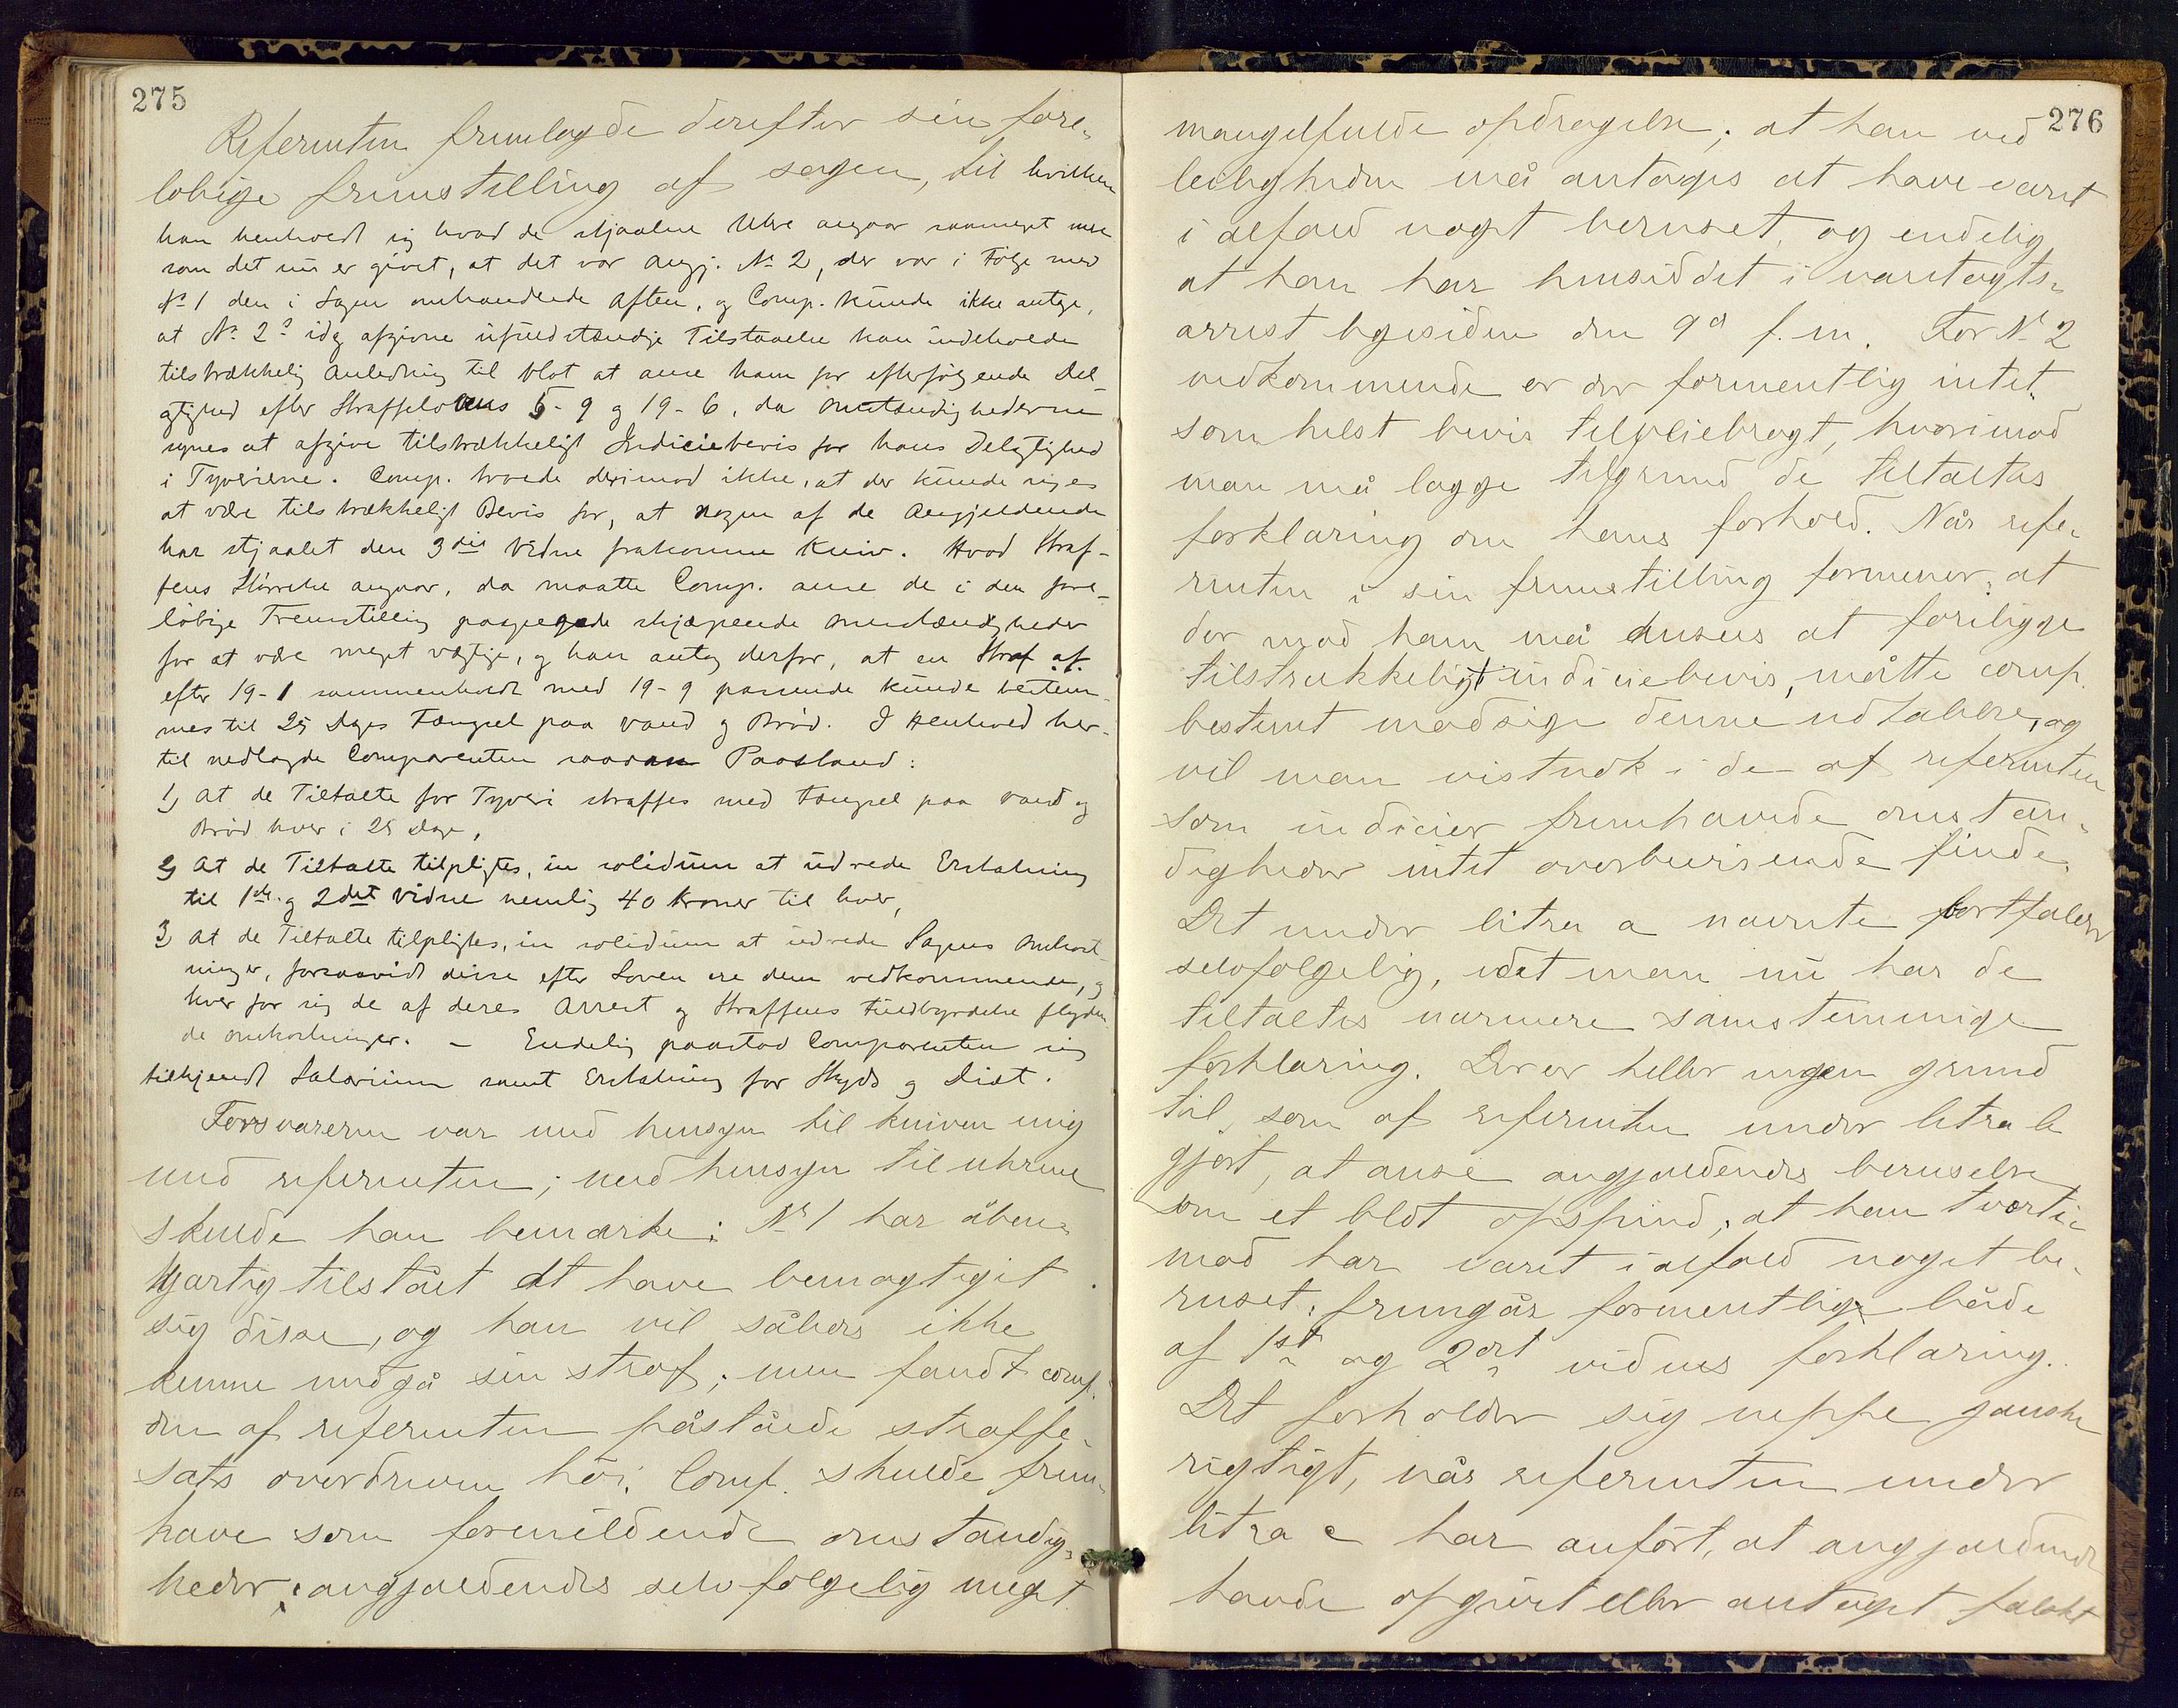 275
Referenten fremlagde derefter sin fore-
löbige fremstilling af sagen, til hvilken
han henholdt sig hvad de stjaalne Uhre angaar saameget mer
som det nu er givet, at det var Angj. No 2, der var i Følge med
No 1 den i Sagen omhandlede Aften, og Comp. kunde ikke antage,
at No 2s idag afgivne ufuldstændige Tilstaaelse kan indeholde
tilstrækkelig Anledning til blot at anse ham for efterfølgende Del-
agtighed efter Straffelovens 5-9 og 19-6, da Omstændighederne
synes at afgive tilstrækkeligt Indiciebevis for hans Delagtighed
i Tyverierne. Comp. troede derimod ikke, at der kunde siges
at være tilstrækkeligt Bevis for, at nogen af de Angjeldende
har stjaalet den 3die Vidne frakomne Kniv. Hvad Straf-
fens Størrelse angaar, da maatte Comp. anse de i den fore-
löbige Fremstilling paapegede skjærpende Omstændigheder
for at være meget vægtige, og han antog derfor, at en Straf af
efter 19-1 sammenholdt med 19-9 passende kunde bestem-
mes til 25 Dages Fængsel paa Vand og Brød. I Henhold her-
til nedlagde Comparenten saadan Paastand:
1) At de Tiltalte for Tyveri straffes med Fængsel paa Vand og
Brød hver i 25 Dage,
2) At de Tiltalte tilpligtes, in solidum at udrede Erstatning
til 1ste og 2det Vidne nemlig 40 Kroner til hver,
3) At de Tiltalte tilpligtes, in solidum at udrede Sagens Omkost-
ninger, forsaavidt disse efter Loven ere dem vedkommende, og
hver for sig de af deres Arrest og Straffens Fuldbyrdelse flyden-
de Omkostninger. - Endelig paastod Comparenten sig
tilkjendt Salarium samt Erstatning for Skyds og Diæt.
Forsvareren var med hensyn til kniven enig
med referenten; med hensyn til uhrene
skulde han bemærke: No 1 har åben-
hjærtig tilstået at have bemægtiget
sig disse, og han vil således ikke
kunne undgå sin straf; men fandt comp.
den af referenten påståede straffe-
sats overdreven höi. Comp. skulde frem-
hæve som formildende omstændig-
heder: angjældendes selvfölgelig meget
276
mangelfulde opdragelse; at han ved
leiligheden må antages at have været
i alfald noget beruset, og endelig
at han har hensiddet i varetægts-
arrest ligesiden den 9d f. m. For No 2
vedkommende er der formentlig intet-
somhelst bevis tilveiebragt, hvorimod
man må lægge tilgrund de tiltaltes
forklaring om hans forhold. Når refe-
renten i sin fremstilling formener, at
der mod ham må ansees at foreligge
tilstrækkeligt indiciebevis, måtte comp.
bestemt modsige denne udtalelse, og
vil man vistnok i de af referenten
som indicier fremhævede omstæn-
digheder intet overbevisende finde.
Det under litra a nævnte bortfalder
selvfölgelig, idet man nu har de
tiltaltes nærmere samstemmige
forklaring. Der er heller ingen grund
til, som af referenten under litra b
gjort, at anse angjældendes beruselse
som et blot opspind; at han tværti-
mod har været i alfald noget be-
ruset, fremgår formentlig både
af 1st og 2det vidnes forklaring.
Det forholder sig neppe ganske
rigtigt, når referenten under
litra c har anfört, at angjældende
havde opgivet eller antaget falskt